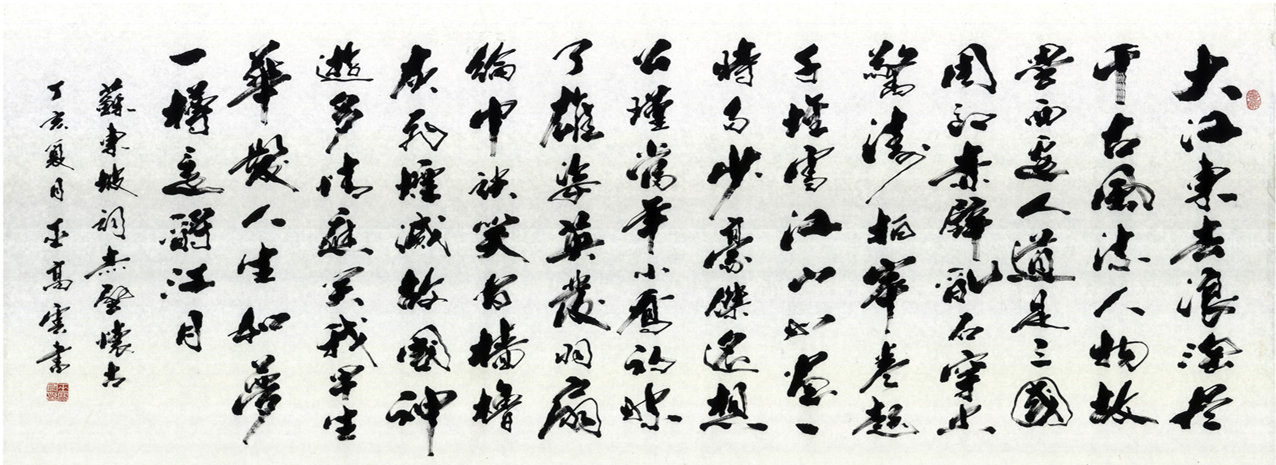 大江東去浪淘尽
千古風流人物故
壘西邊人道是三國
周郎赤壁亂石穿空
驚濤拍岸卷起
千堆雪江山如畫一
時多少豪傑遙想
公瑾當年小喬初嫁
了雄姿英發羽扇
綸巾談笑間檣櫓
灰飛煙滅故國神
遊多情應笑我早生
華髮人生如夢
一樽還酹江月
蘇東坡詞赤壁懷古
丁亥夏月高書